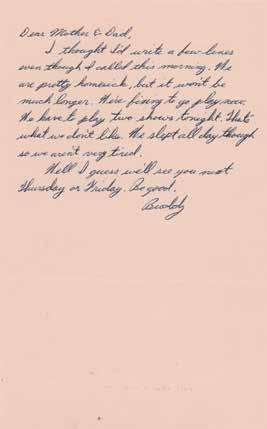 Dear Mother & Dad,
I thought I'd write a few lines
even though I called this morning. We
are pretty homesick, but it won't be
much longer. We're fixing to go play now.
We have to play two shows tonight. That's
what we don't like. We slept all day though
so we aren't very tired.
Well I guess we'll see you next
Thursday or Friday. Be good.
Buddy